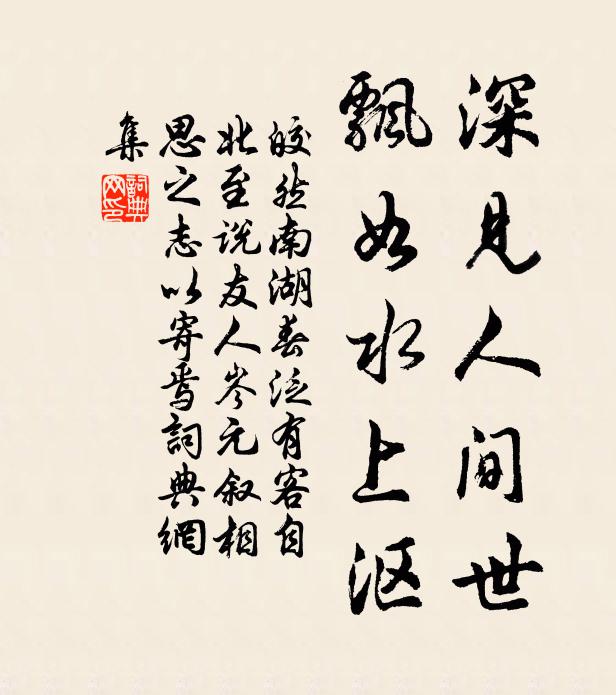 深见人间世
飘如水上沤
皎然南湖春泛有客自
北至说友人岑元叙相
思之志以寄焉詞典網
集
詞典
网印